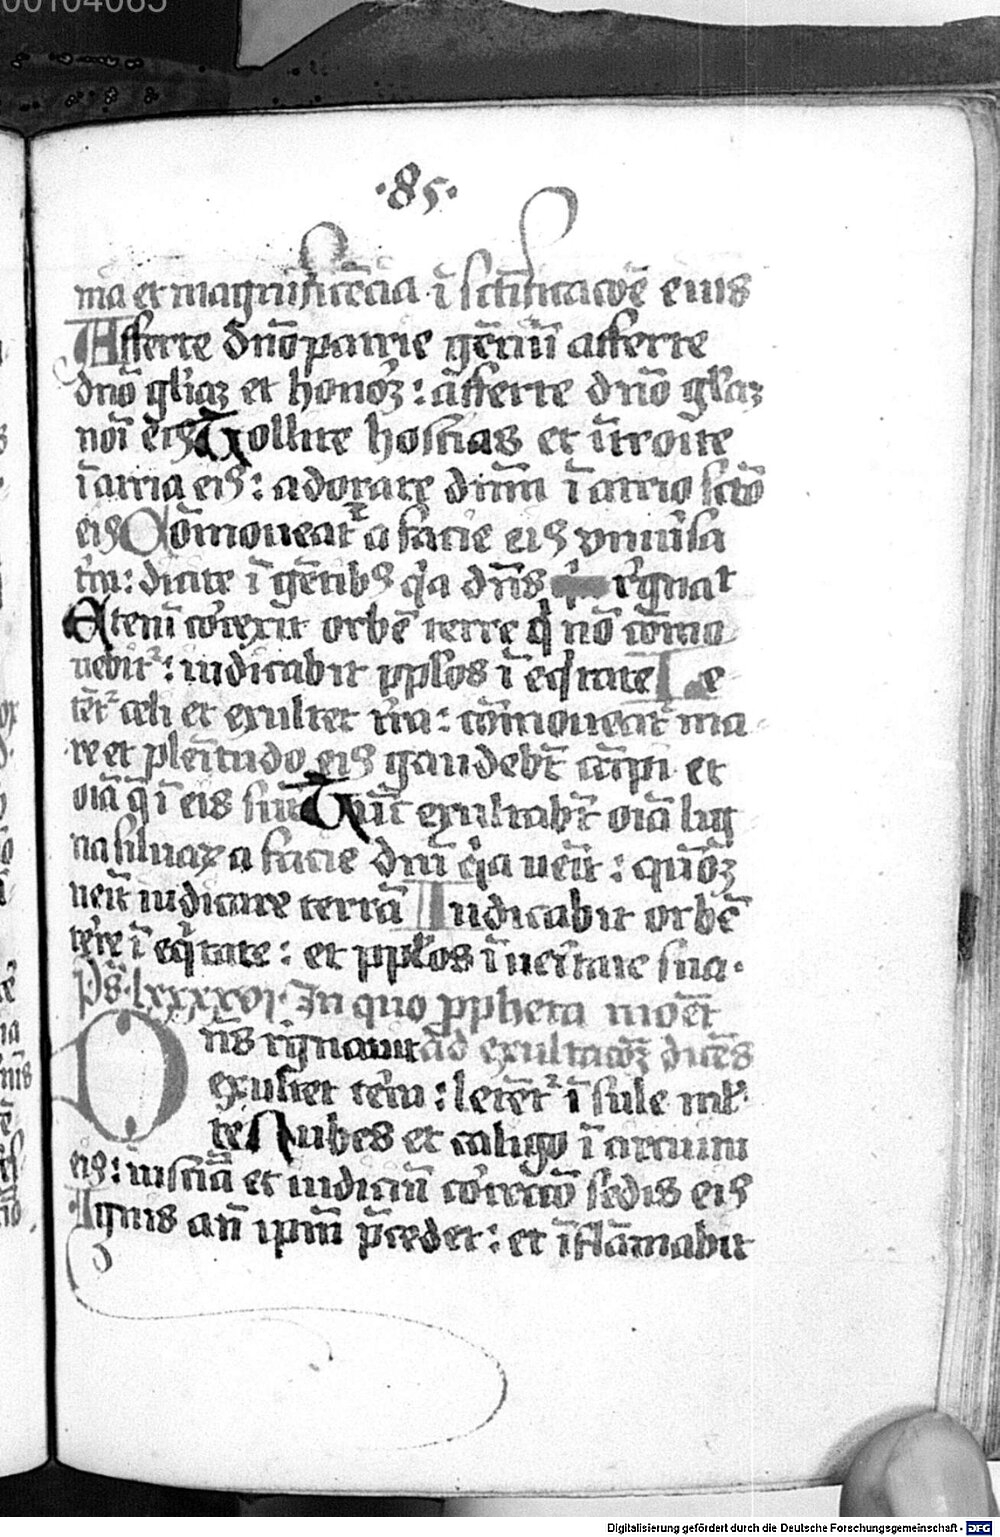 00104085
·85·
nia et magnificẽcia ĩ sctĩficacõe eius
Afferte dño patrie gẽciũ afferte
dño gl'iaꝫ et honoꝫ: afferte dño gl'iaꝫ
noĩ eiꝰ Tollite hostias et ĩtroite
ĩ atria eiꝰ: adorate dñm ĩ atrio scto
eiꝰ Cõmoueat᷑ a facie eiꝰ vniũsa
tr̃a: dicite ĩ gẽtibꝰ q̃a dñs rignat
Eteni correxit orbẽ terre q̃ nõ cõmo
uebit᷑: iudicabit pplos ĩ eq̃tate Le
tẽt᷑ celi et exultet tr̃a: cõmoueat᷑ ma
re et plenitudo eiꝰ gaudebt̃ cãpi et
oĩa q̃ ĩ eis sũt Tũc exultabt̃ oĩa lig
na siluaꝝ a facie dñi q̃a ueĩt: qm̃
ueĩt iudicare terrã Iudicabit orbẽ
terre ĩ eq̃tate: et pplos ĩ ueritate sua·
Ps̃· lxxxxvi· In quo ppheta mõet
Dñs rignauit ad exultacõꝫ dicẽs
exultet terra: letẽt᷑ ĩsule ml'
te Nubes et caligo ĩ circuitu
eiꝰ: iusticia et iudiciũ correctõ sedis eiꝰ
Ignis añ ipm̃ p̃cedet: et ĩflãmabit
Digitalisierung gefördert durch die Deutsche Forschungsgemeinschaft - DFG